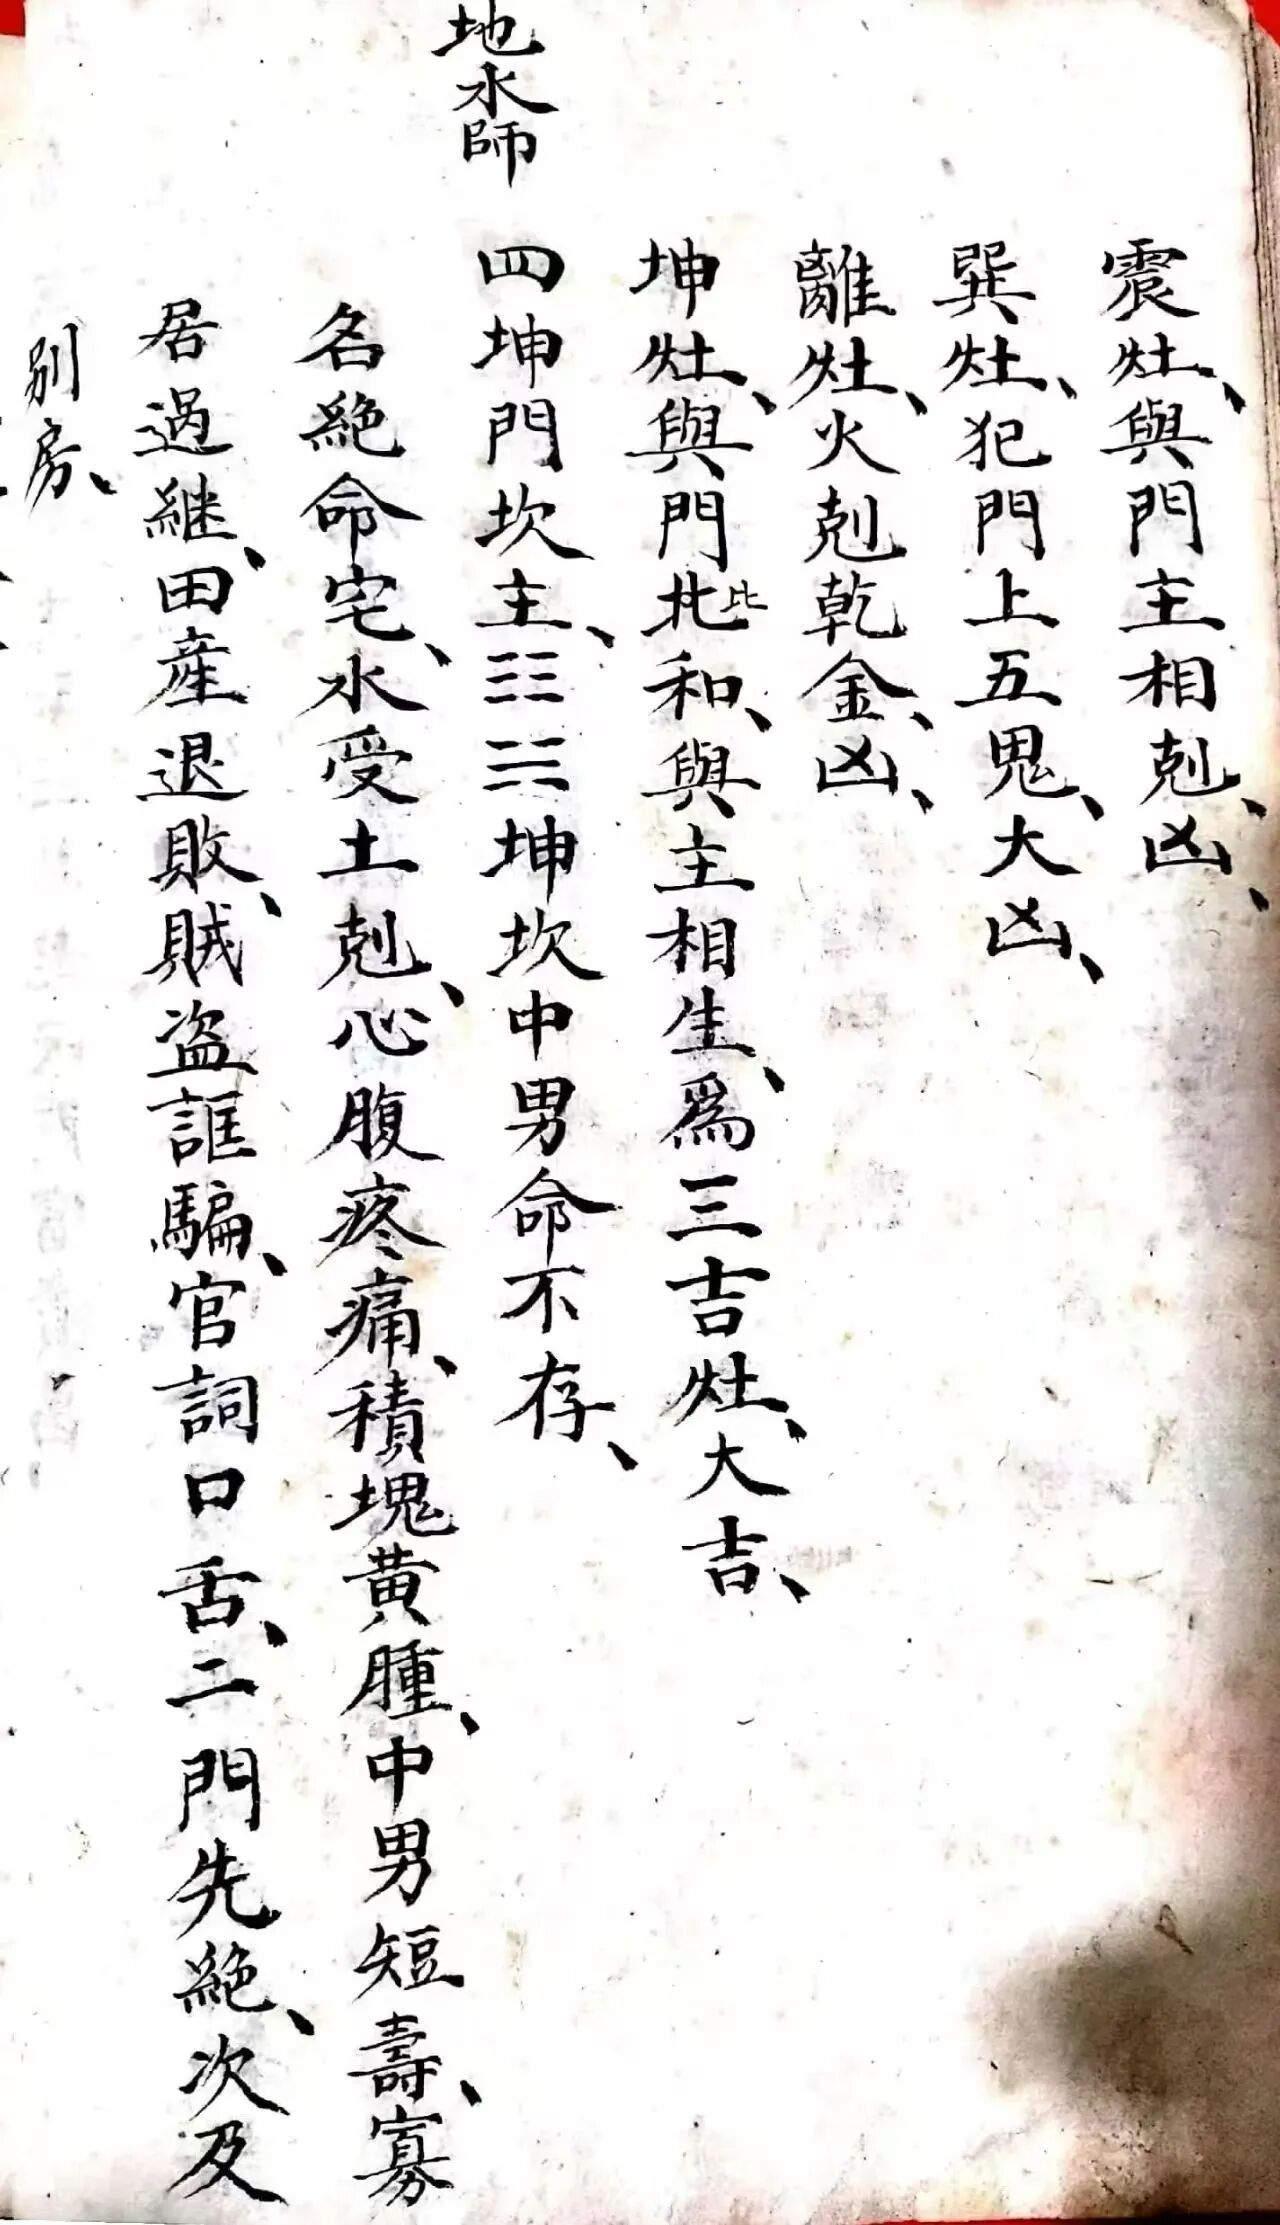 震灶、與門主相剋、凶、
巽灶、犯門上五鬼、大凶、
離灶、火剋乾金、凶、
坤灶、與門北比和、與主相生、爲三吉灶、大吉、
地水師
四坤門坎主、☷☵坤坎中男命不存、
名絶命宅、水受土剋、心腹疼痛、積塊黄腫、中男短壽、寡
居過継、田産退敗、賊盗誆騙、官詞口舌、二門先絶、次及
别房、